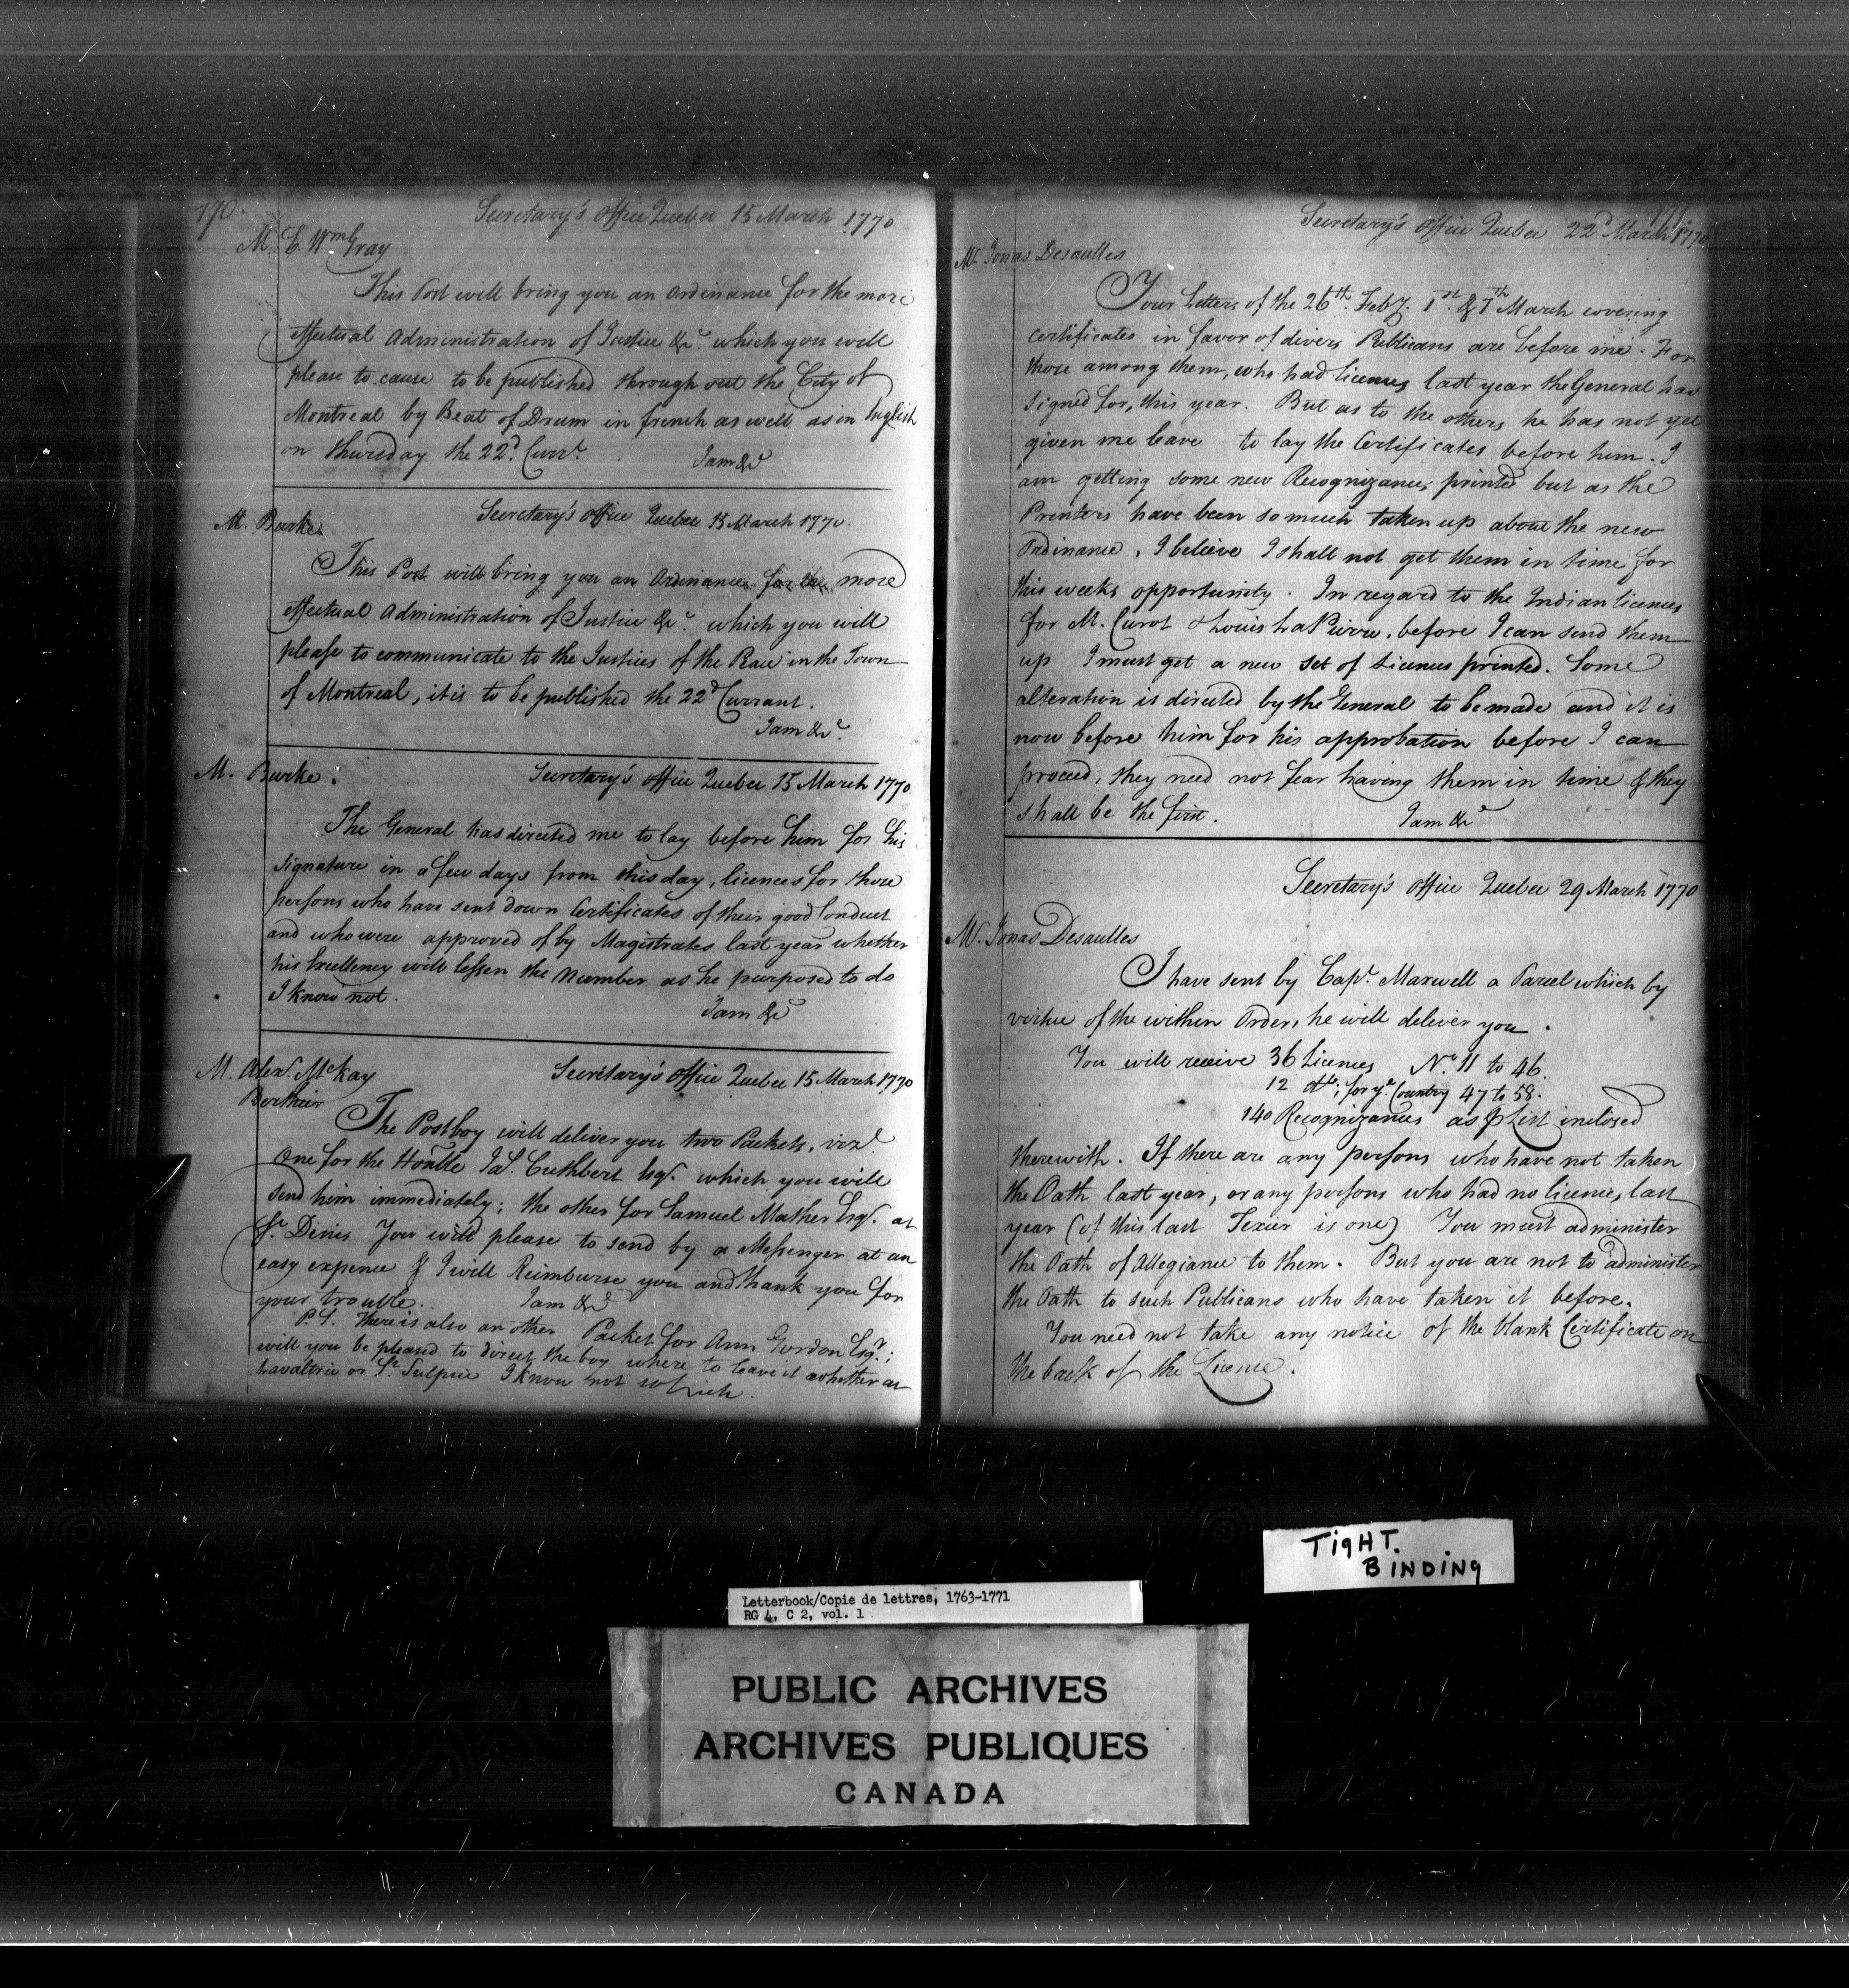 170.
Secretary's Office Quebec 15 March 1770
M. E. Wm Gray
This Post will bring you an Ordinance for the more
effectual Administration of Justice &c. which you will
please to cause to be published through out the City of
Montreal by Beat of Drum in french as well as in English
on thursday the 22d. Currt.
I am &c
Secretary's Office Quebec 15 March 1770.
M. Burke
This Post will bring you an Ordinance for the more
effectual Administration of Justice &c. which you will
please to communicate to the Justices of the Peace in the Town
of Montreal, it is to be published the 22d Currant.
I am &c.
M. Burke.
Secretary's Office Quebec 15 March 1770
The General has directed me to lay before him for his
signature in a few days from this day, licences for those
persons who have sent down Certificates of their good Conduct
and who were approved of by Magistrates last year whether
his Excellency will lessen the Number as he purposed to do
I know not.
I am &c
M. Alexr. McKay
Berthier
Secretary's Office Quebec 15 March 1770
The Postboy will deliver you two Packets, vizt.
One for the Honble Jas. Cuthbert Esqr. which you will
send him immediately; the other for Samuel Mather Esqr. at
St. Denis You will please to send by a Messenger at an
easy expence & I will Reimburse you and thank you for
your trouble.
I am &c
P.S. There is also an other Packet for Ann Gordon Esqr.;
will you be pleased to direct the boy where to leave it whether at
Lavaltrie or St. Sulpice I know not which.
171
Secretary's Office Quebec 22d March 1770
Mr. Jonas Desaulles
Your Letters of the 26th. Feby. 1st. & 7th March covering
certificates in favor of divers Publicans are before me. For
those among them, who had licences last year the General has
signed for, this year. But as to the others he has not yet
given me leave to lay the Certificates before him. I
am getting some new Recognizances printed but as the
Printers have been so much taken up about the new
Ordinance, I believe I shall not get them in time for
this weeks opportunity. In regard to the Indian licences
for M. Curot & Louis La Pierre, before I can send them
up I must get a new set of Licences printed. Some
alteration is directed by the General to be made and it is
now before him for his approbation before I can
proceed, they need not fear having them in time & they
shall be the first.
I am &c
Secretary's Office Quebec 29 March 1770
M. Jonas Desaulles
I have sent by Capt. Maxwell a Parcel which by
virtue of the within Order, he will deliver you.
You will receive 36 Licences No. 11 to 46.
12 do; for ye. Country 47 to 58.
140 Recognizances as P List inclosed
therewith. If there are any persons who have not taken
the Oath last year, or any persons who had no licences, last
year (of this last Texier is one) You must administer
the Oath of Allegiance to them. But you are not to administer
the Oath to such Publicans who have taken it before.
You need not take any notice of the blank Certificate on
the back of the Licence.
TIGHT.
BINDING
Letterbook/Copie de lettres, 1763-1771
RG 4, C 2, vol. 1
PUBLIC ARCHIVES
ARCHIVES PUBLIQUES
CANADA